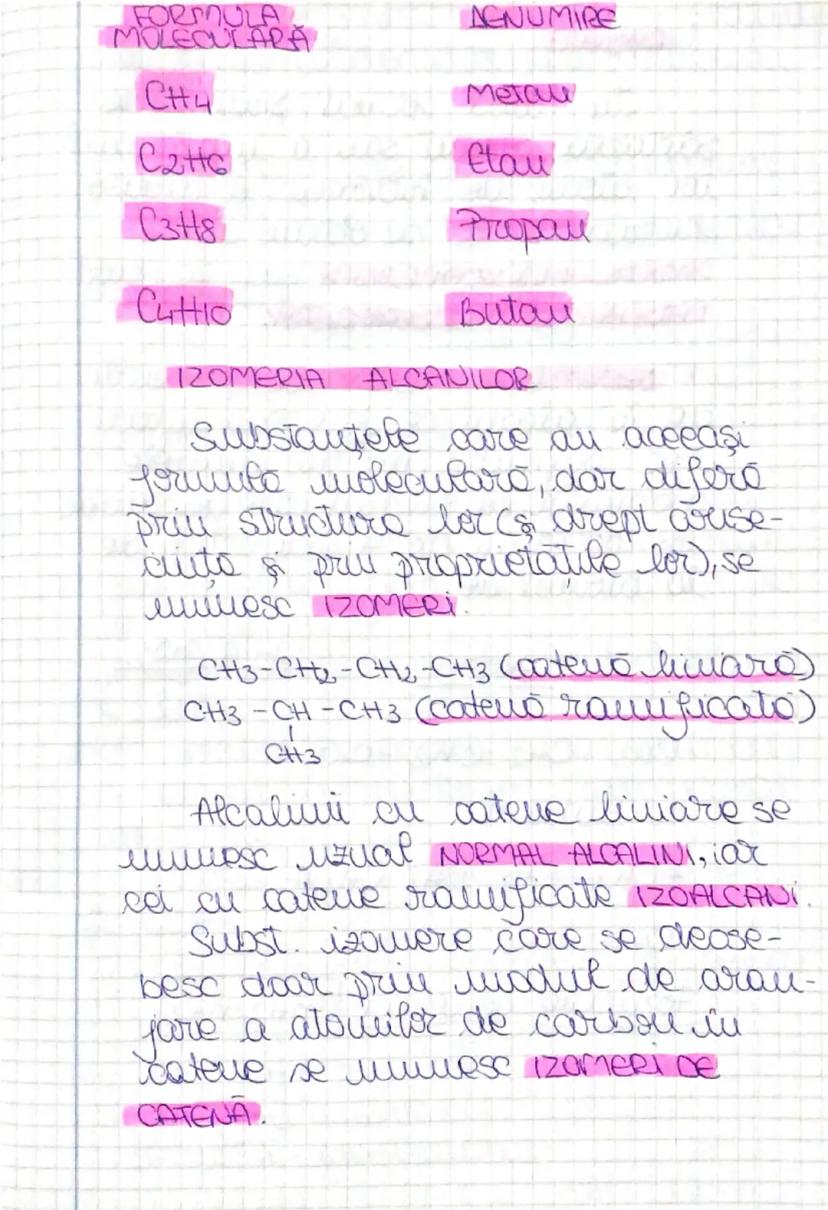 FORMULA DENUMIRE
MOLECULARĂ
CH4 Metan
C2H6 Etan
C3H8 Propan
C4H10 Butan
IZOMERIA ALCANILOR
Substanțele care au aceeași
formulă moleculară, dar diferă
prin structura lor (și drept conse-
cință și prin proprietățile lor), se
numesc IZOMERI.
CH3-CH2-CH2-CH3 (catenă liniară)
CH3-CH-CH3 (catenă ramificată)
|
CH3
Alcalinii cu catene liniare se
numesc uzual NORMAL ALCALINI, iar
cei cu catene ramificate IZOALCANI.
Subst. izomere care se deose-
besc doar prin modul de aran-
jare a atomilor de carbon în
catene se numesc IZOMERI DE
CATENĂ.